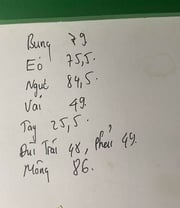 Bụng 79
Eó 75,5.
Ngực 84,5.
Vai 49.
Tay 25,5.
Đùi Trái 48, Phải 49.
Mông 86.